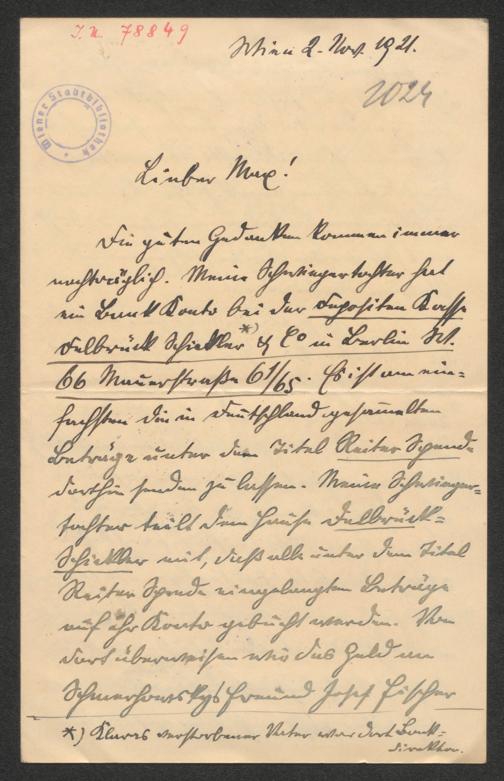 I.N. 78849
Wien 2. Nov. 1921.
1024
Wiener Stadtbibliothek
Lieber Max!
Die guten Gedanken kommen immer
nachträglich. Meine Schwiegertochter hat
ein Bank Konto bei der Depositen Kasse
Delbrück Schickler *) & Co in Berlin W.
66 Mauerstraße 61/65. Es ist am ein=
fachsten die in Deutschland gesammelten
Beträge unter dem Titel Reiter Spende
dorthin senden zu lassen. Meine Schwieger=
tochter teilt dem Hause Delbrück=
Schickler mit, daß alle unter dem Titel
Reiter Spende eingelangten Beträge
auf ihr Konto gebucht werden. Von
dort überweisen wir das Geld an
Freund Josef Fischer
*) Klaras verstorbener Vater war dort Bank=
direktor.